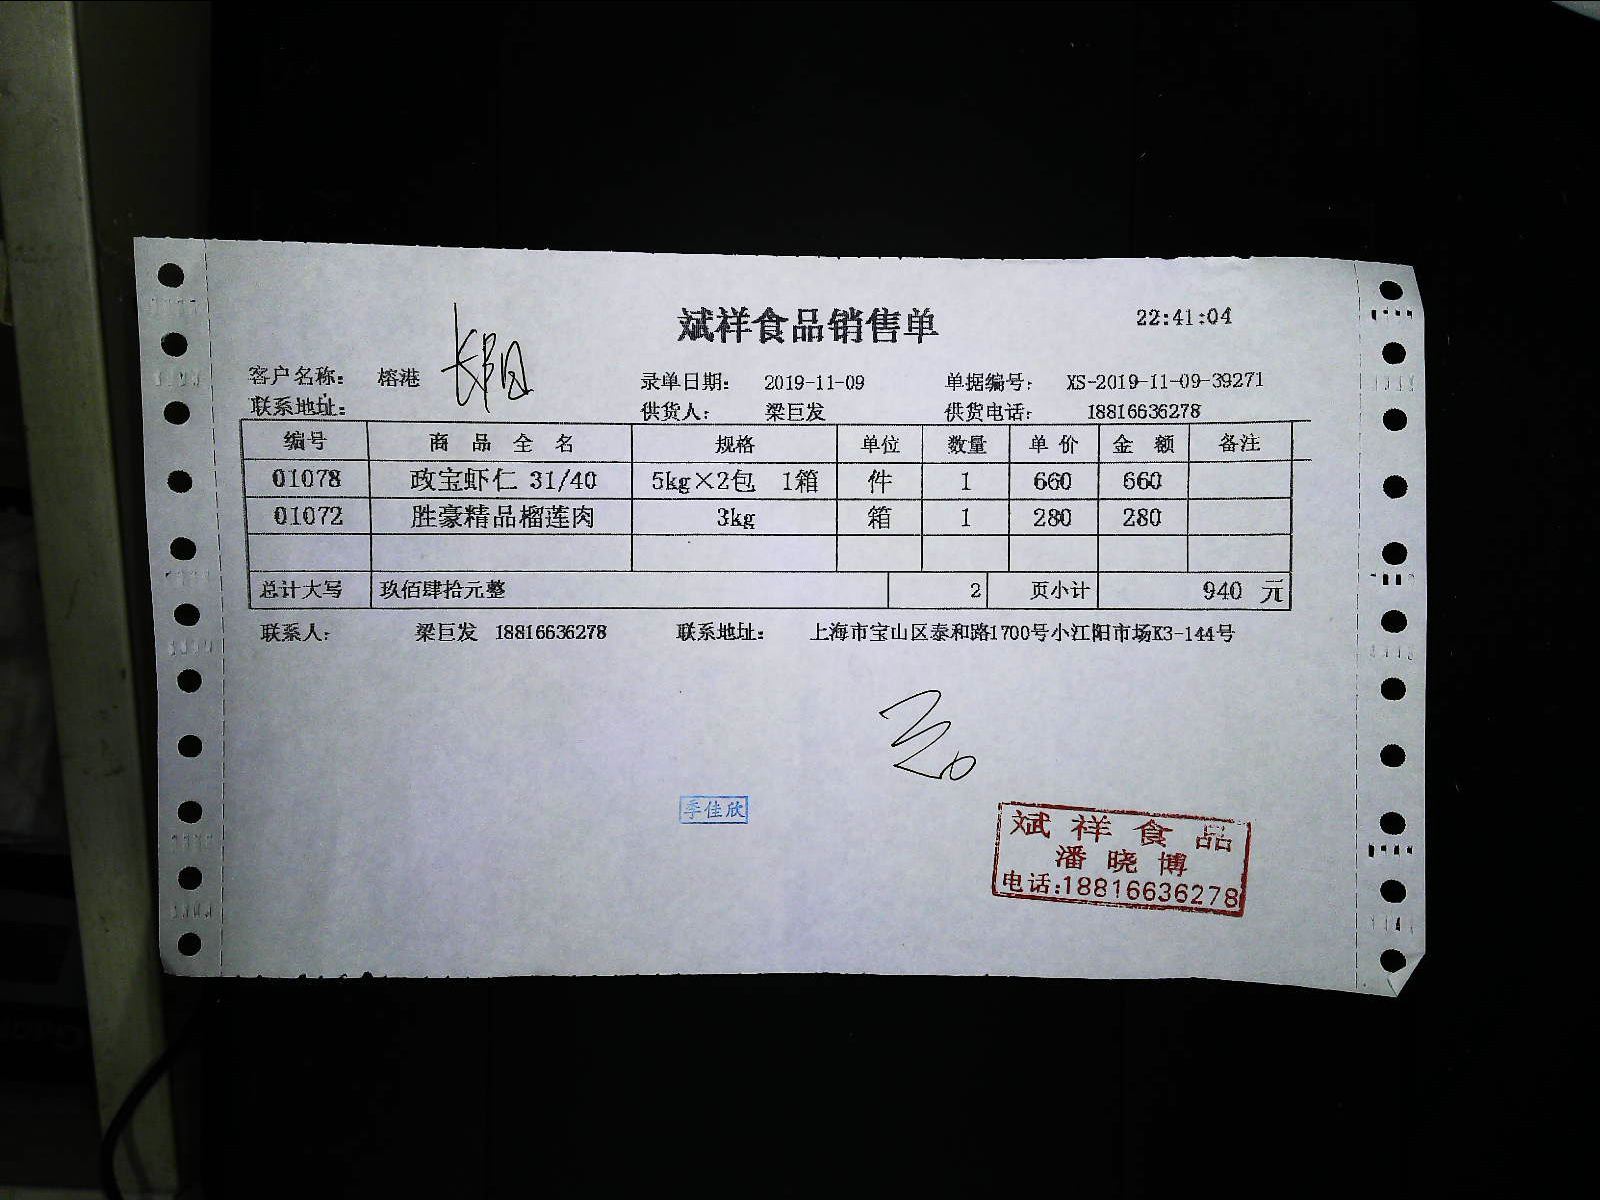 斌祥食品销售单 22:41:04
客户名称： 榕港 长阳 录单日期： 2019-11-09 单据编号： XS-2019-11-09-39271
联系地址： 供货人： 梁巨发 供货电话： 18816636278
编号 商品全名 规格 单位 数量 单价 金额 备注
01078 政宝虾仁 31/40 5kg×2包 1箱 件 1 660 660
01072 胜豪精品榴莲肉 3kg 箱 1 280 280
总计大写 玖佰肆拾元整 2 页小计 940 元
联系人： 梁巨发 18816636278 联系地址： 上海市宝山区泰和路1700号小江阳市场K3-144号
季佳欣
斌祥食品
潘晓博
电话:18816636278